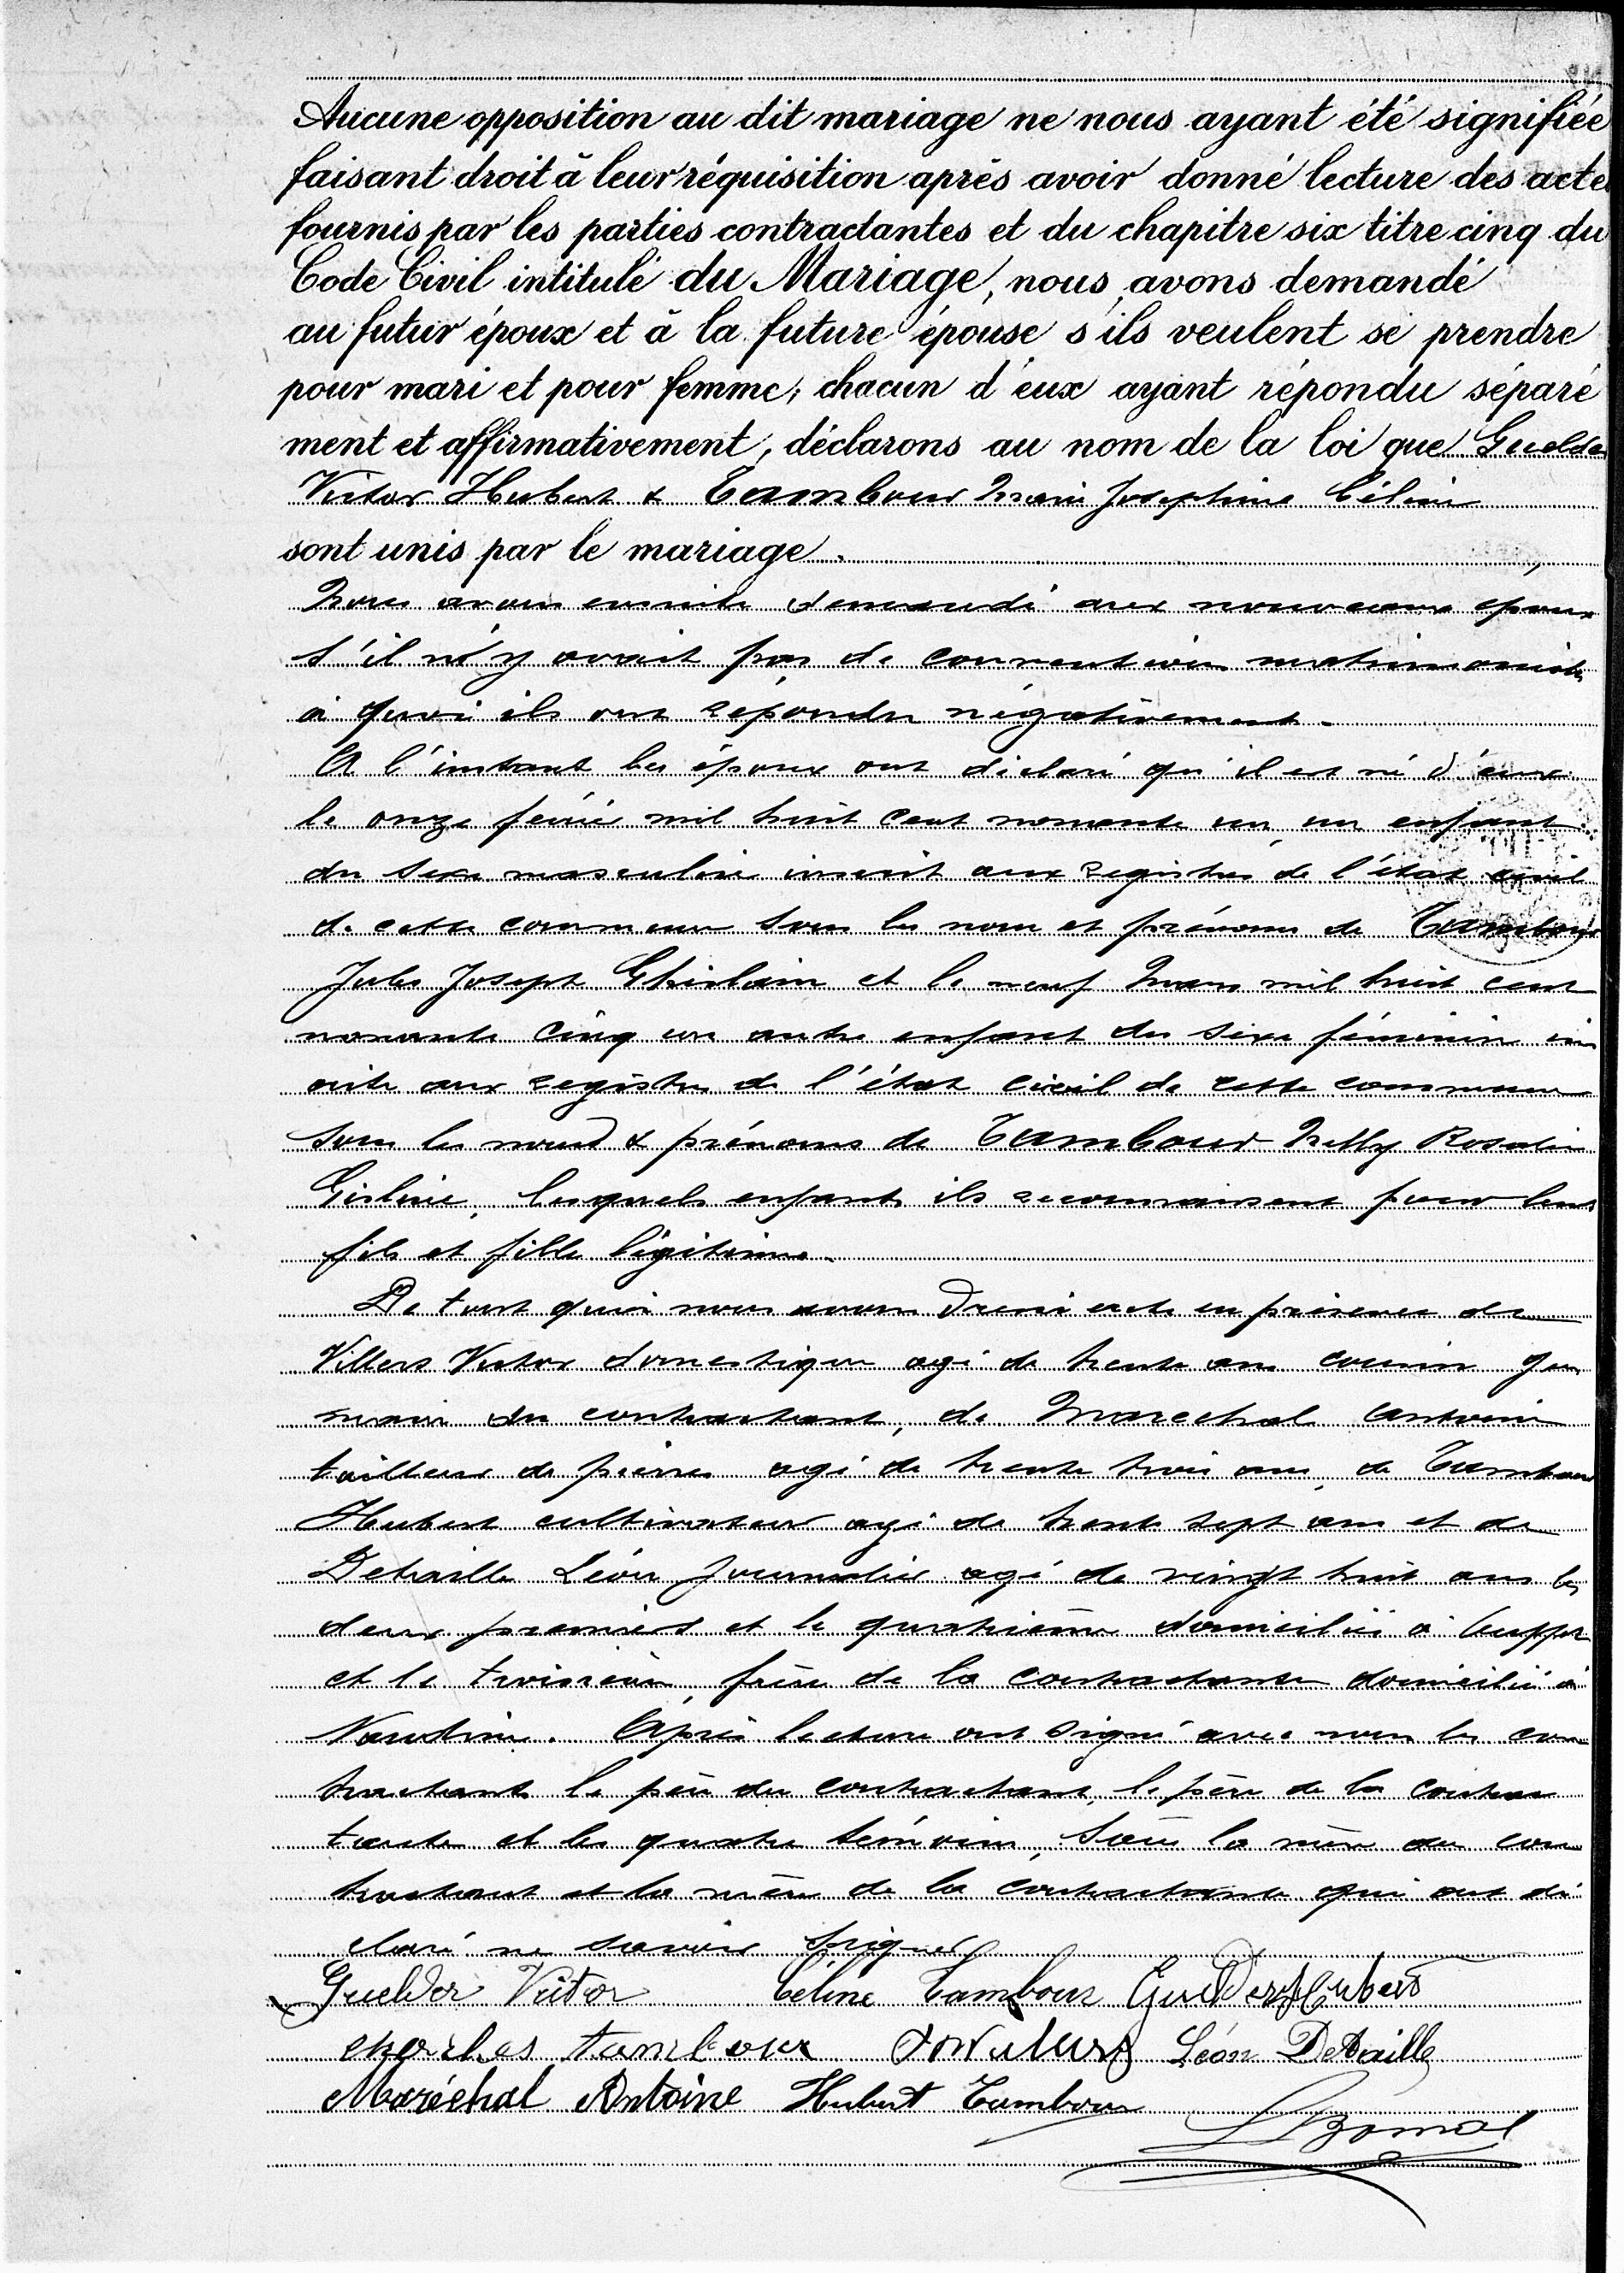 Aucune opposition au dit mariage ne nous ayant été signifiée
faisant droit à leur réquisition après avoir donné lecture des acte
fournis par les parties contractantes et du chapitre six titre cinq du
Code Civil intitulé du Mariage, nous avons demandé
au futur époux et à la future épouse s'ils veulent se prendre
pour mari et pour femme; chacun d'eux ayant répondu séparé
ment et affirmativement, déclarons au nom de la loi que Guelder
Victor Hubert & Tambour Marie Joséphine Céline
sont unis par le mariage.
Nous avons ensuite demandé aux nouveaux époux
s'il n'y avait pas de convention matrimoniale
à quoi ils ont répondu négativement.
A l'instant les époux ont déclaré qu'il est né d'eux
le onze février mil huit cent nonante un, un enfant
du sexe masculin inscrit aux registres de l'état civil
de cette commune sous les nom et prénoms de Tambour
Jules Joseph Ghislain et le neuf Mars mil huit cent
nonante cinq un autre enfant du sexe féminin ins
crite aux registres de l'état civil de cette commune
sous les noms & prénoms de Tambour Nelly Rosalie
Gisline, lesquels enfants ils reconnaissent pour leurs
fils et fille légitimes.
De tout quoi nous avons dressé acte en présence de
Villers Victor domestique agé de trente ans cousin ger
main du contractant, de Marechal Antoine
tailleur de pierres agé de trente trois ans, de Tambour
Hubert cultivateur agé de trente sept ans et de
Detaille Léon journalier agé de vingt huit ans les
deux premiers et le quatrième domiciliés à
et le troisième, frère de la contractante domicilié à
Nandrin. Après lecture ont signé avec nous les con
tractants le père du contractant, le père de la contrac
tante et les quatre témoins, sauf la mère du con
tractant et la mère de la contractante qui ont dé
claré ne savoir signer
Guelder Victor Céline Tambour Guelder Hubert
charles tambour Léon Detaille
Maréchal Antoine Hubert Tambour